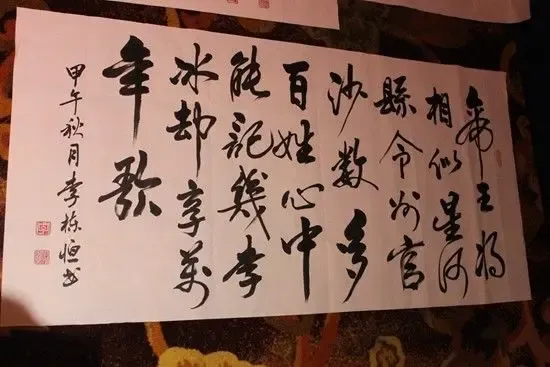 帝王将
相似星河
縣令州官
沙數多
百姓心中
能記幾李
冰却享萬
年歌
甲午秋月李栋恒书